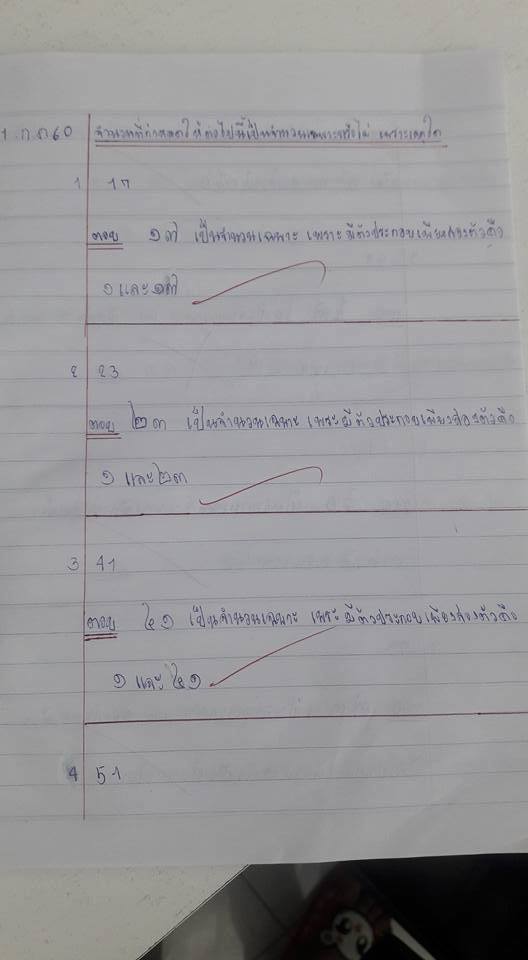 1 ก.ค 60 จำนวนที่กำหนดให้ต่อไปนี้เป็นจำนวนเฉพาะหรือไม่ เพราะเหตุใด
1 17
ตอบ ๑๗ เป็นจำนวนเฉพาะ เพราะ มีตัวประกอบเพียงสองตัวคือ
๑ และ ๑๗
2 23
ตอบ ๒๓ เป็นจำนวนเฉพาะ เพราะ มีตัวประกอบเพียงสองตัวคือ
๑ และ ๒๓
3 41
ตอบ ๔๑ เป็นจำนวนเฉพาะ เพราะ มีตัวประกอบเพียงสองตัวคือ
๑ และ ๔๑
4 51